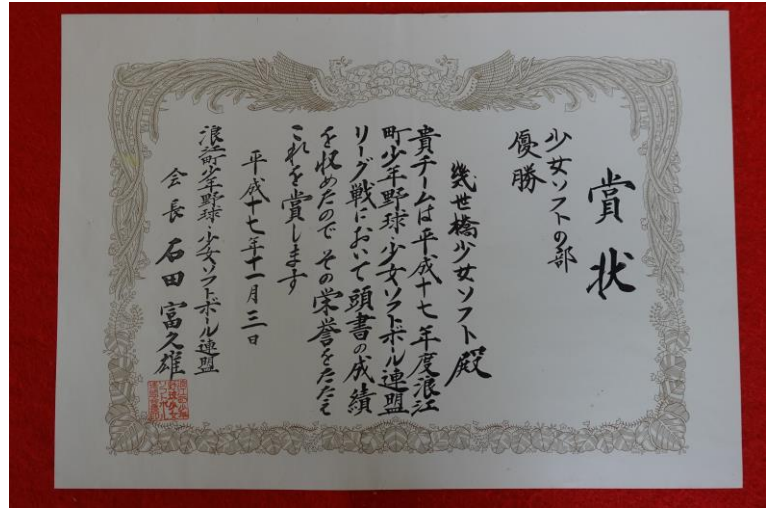 賞状
少女ソフトの部
優勝
幾世橋少女ソフト殿
貴チームは平成十七年度浪江
町少年野球・少女ソフトボール連盟
リーグ戦において頭書の成績
を収めたのでその栄誉をたたえ
これを賞します
平成十七年十一月三日
浪江町少年野球・少女ソフトボール連盟
会長 石田富久雄